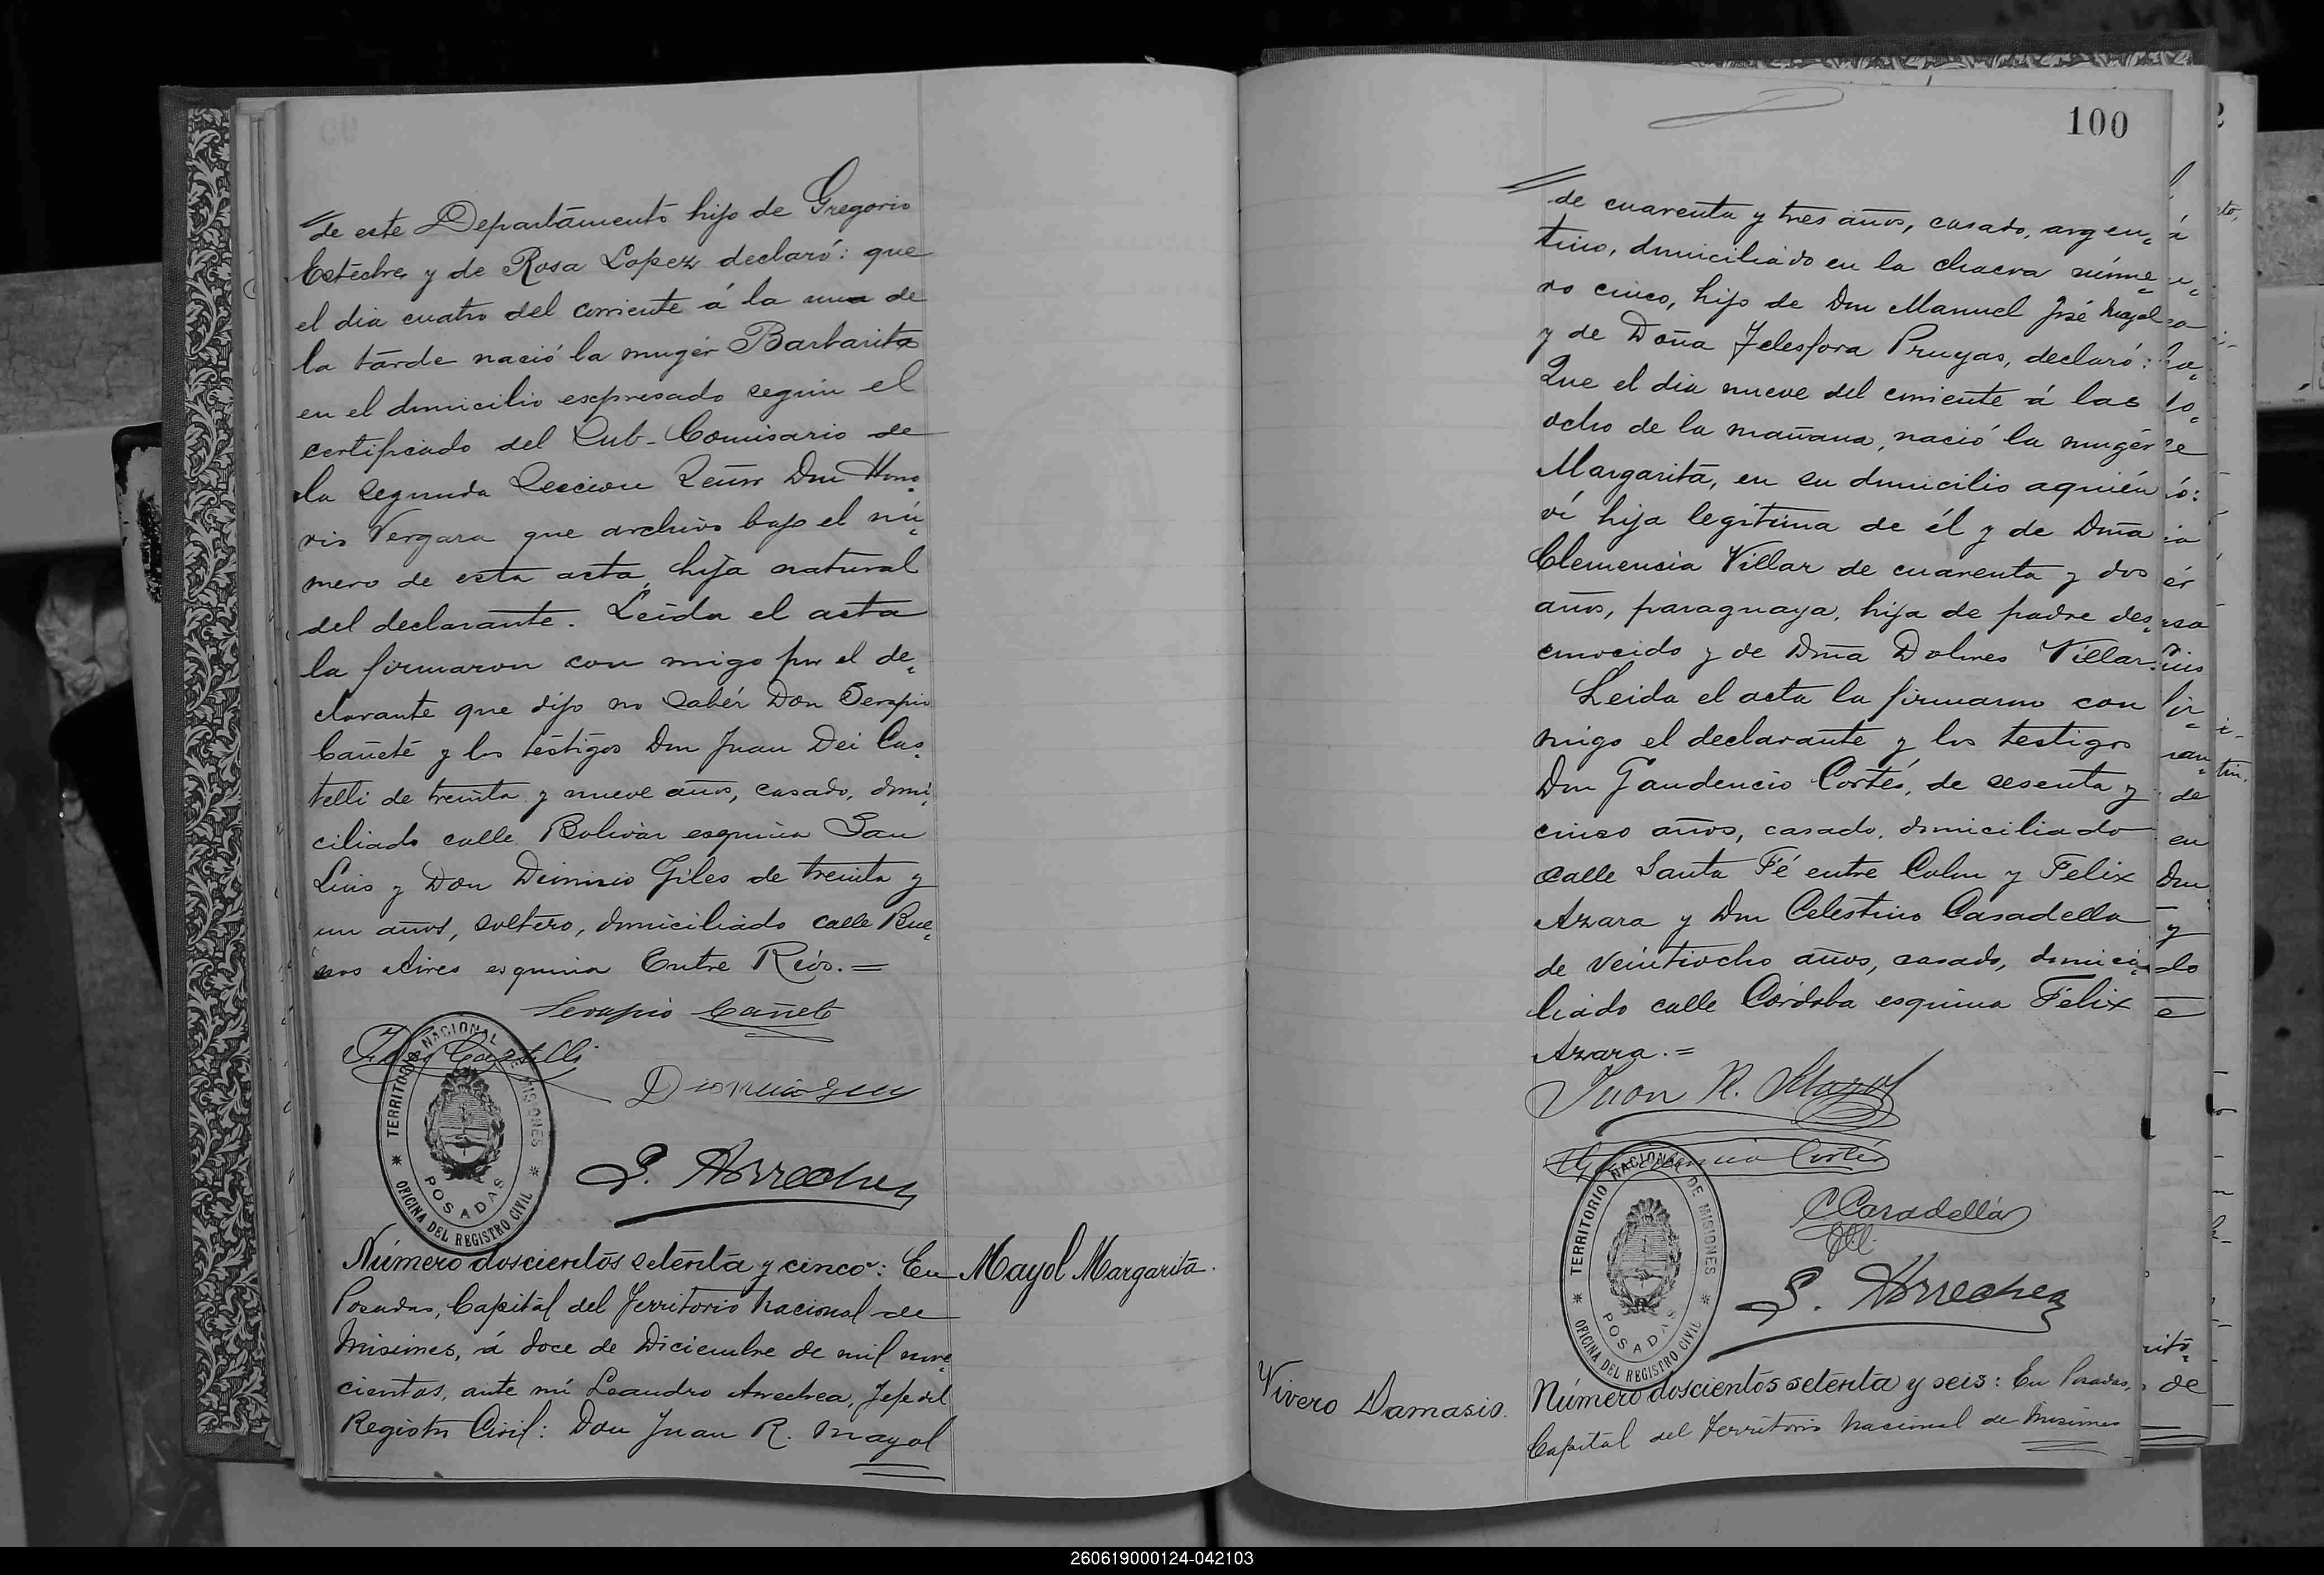 de este Departamento hijo de Gregorio
Esteche y de Rosa Lopez declaró: que
el dia cuatro del corriente á la una de
la tarde nació la muger Barbarita
en el domicilio expresado según el
certificado del Sub-Comisario de
la Segunda Seccion Señor Don Hono
rio Vergara que archivo bajo el nú
mero de esta acta, hija natural
del declarante. Leida el acta
la firmaron con migo por el de
clarante que dijo no saber Don Serapio
Cañete y los testigos Don Juan Dei Cas
telli de treinta y nueve años, casado, domi
ciliado calle Bolivar esquina San
Luis y Don Dionisio Giles de treinta y
un años, soltero, domiciliado calle Bue
nos Aires esquina Entre Rios.=
Serapio Cañete
Castelli
TERRITORIO NACIONAL DE MISIONES
POSADAS
OFICINA DEL REGISTRO CIVIL
L. Arrechea
Número doscientos setenta y cinco: En
Mayol Margarita.
Posadas, Capital del Territorio Nacional de
Misiones, á doce de Diciembre de mil nove
cientos, ante mí Leandro Arrechea, Jefe del
Registro Civil: Don Juan R. Mayol
100
de cuarenta y tres años, casado, argen
tino, domiciliado en la chacra núme
ro cinco, hijo de Don Manuel José Mayol
y de Doña Telesfora Pruyas, declaró:
Que el dia nueve del corriente á las
ocho de la mañana, nació la muger
Margarita, en su domicilio aquién
ví hija legitima de él y de Doña
Clemencia Villar de cuarenta y dos
años, paraguaya, hija de padre des
conocido y de Doña Dolores Villar.
Leida el acta la firmaron con
migo el declarante y los testigos
Don Gaudencio Cortés, de sesenta y
cinco años, casado, domiciliado
calle Santa Fé entre Colon y Felix
Azara y Don Celestino Casadella
de veintiocho años, casado, domici
liado calle Córdoba esquina Félix
Azara.=
Juan R. Mayol
Gaudencio Cortés
C Casadella
TERRITORIO NACIONAL DE MISIONES
POSADAS
OFICINA DEL REGISTRO CIVIL
L. Arrechea
Vivero Damasio.
Número doscientos setenta y seis: En Posadas,
Capital del Territorio Nacional de Misiones
260619000124-042103